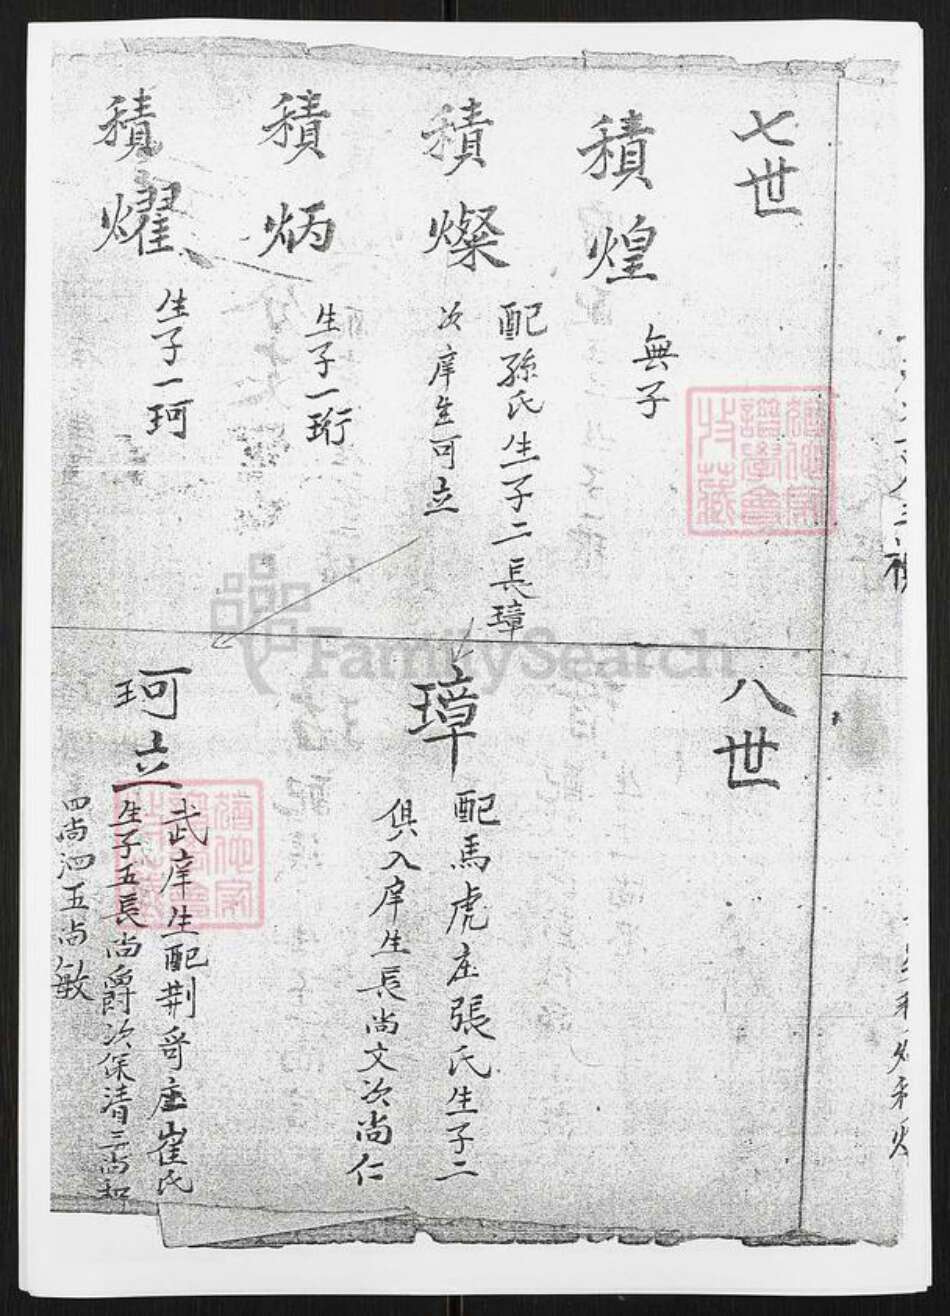 七世
積煌
無子
積燦
配孫氏生子二長璋
次庠生可立
積炳
生子一珩
積燿
生子一珂
八世
璋
配馬虎庄張氏生子二
俱入庠生長尚文次尚仁
珂立
武庠生配荆哥庄崔氏
生子五長尚爵次保清三尚
四尚泗五尚敏
FamilySearch